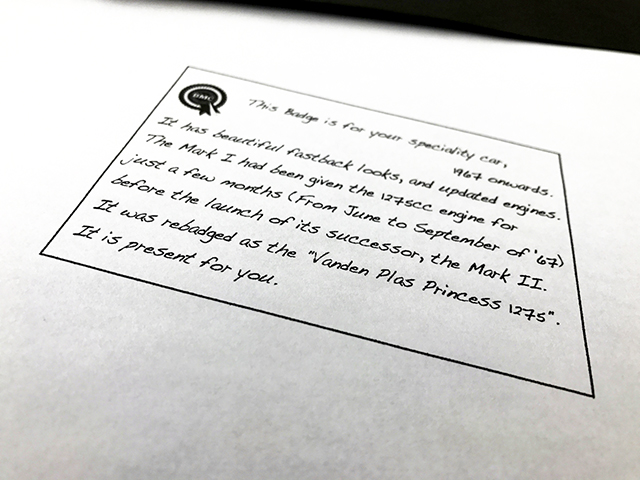 BMC
This Badge is for your speciality car,
1967 onwards.
It has beautiful fastback looks, and updated engines.
The Mark I had been given the 1275cc engine for
just a few months (From June to September of '67)
before the launch of its successor, the Mark II.
It was rebadged as the "Vanden Plas Princess 1275".
It is present for you.